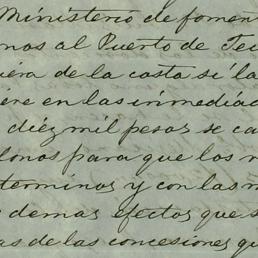 Ministerio de fomen
nos al Puerto de Te
era de la costa si la
ere en las inmediac
diez mil pesos se ca
lonos para que los
terminos y con las m
demas efectos que s
as de las concesiones qu